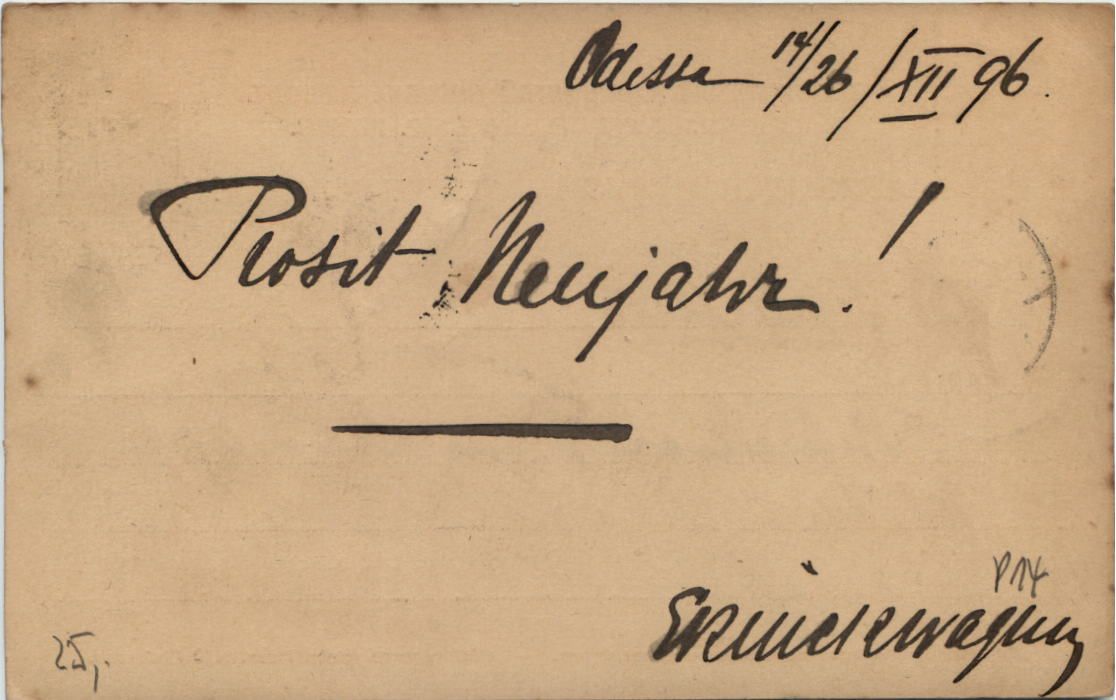 Odessa 14/26/XII 96.
Prosit Neujahr!
P14
25,-